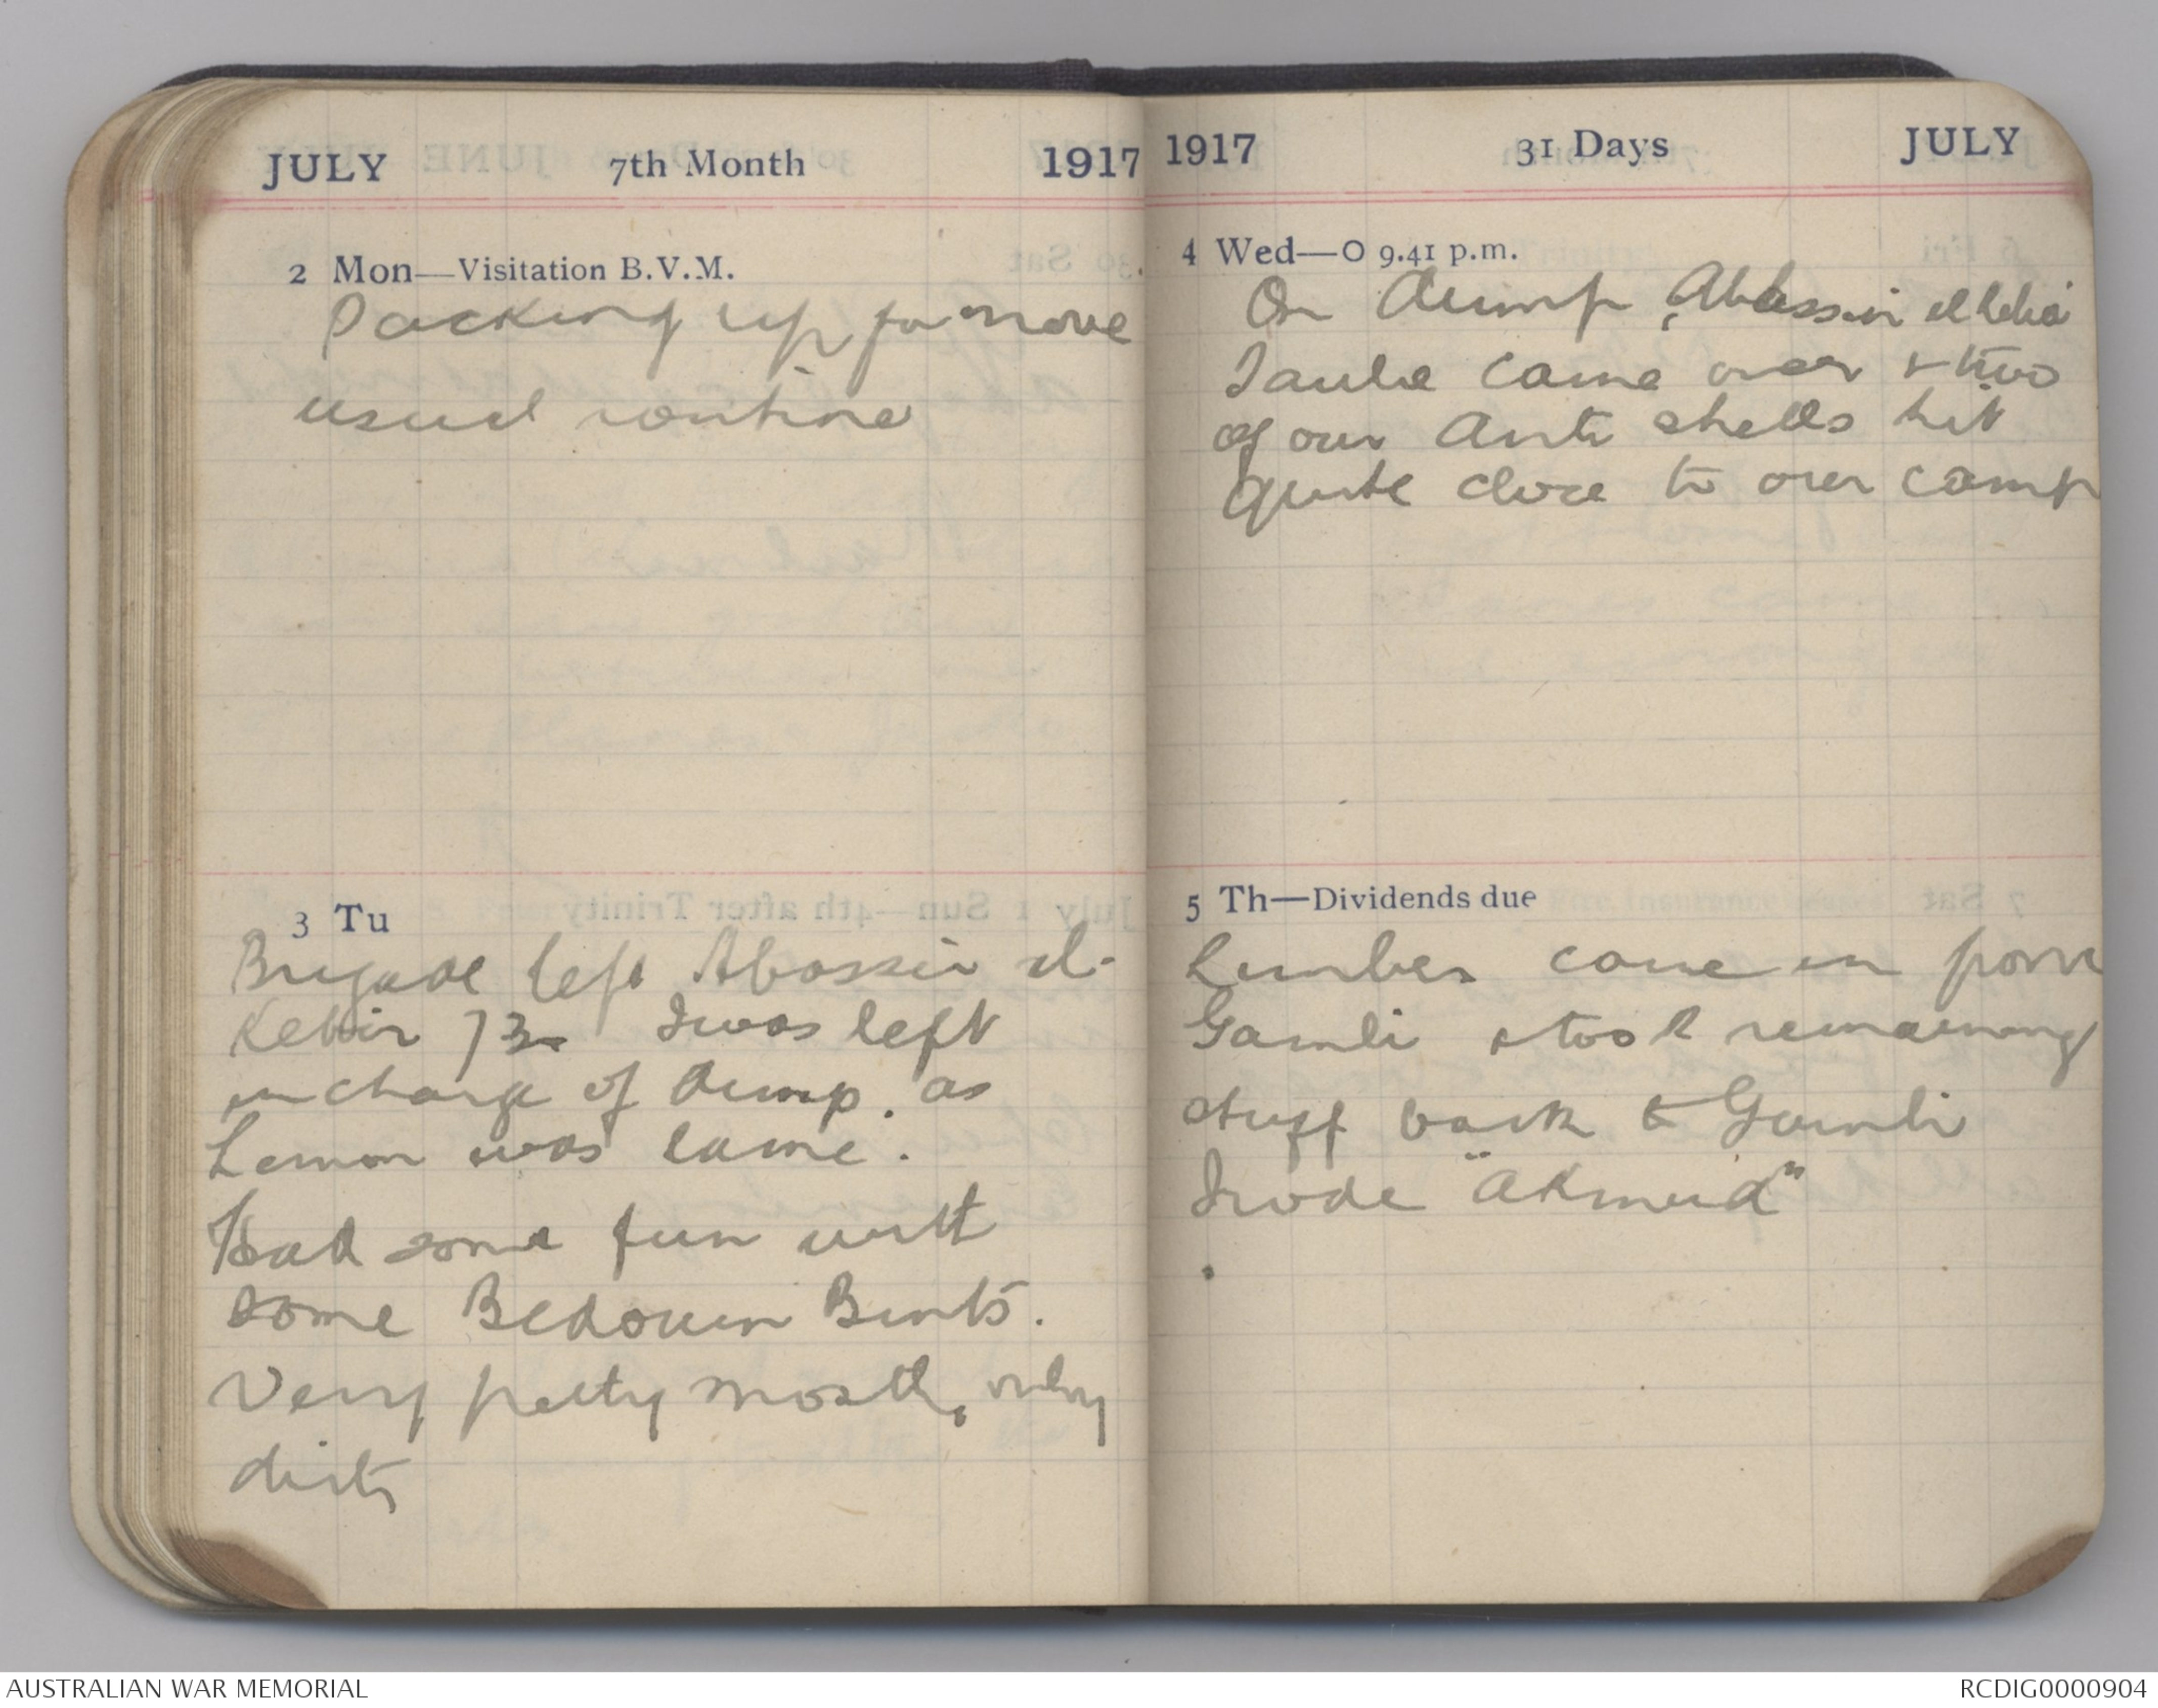 JULY 7th Month 1917
2 Mon—Visitation B.V.M.
Packing up for move
usual routine
3 Tu
Brigade left Abassir el-
Kebir 7 30 I was left
in charge of dump. as
Lemon was lame.
Had some fun with
some Bedouin Bints.
Very pretty most, only
dirty
1917 31 Days JULY
4 Wed—O 9.41 p.m.
On dump, Abassir el Kebir
Taube came over & two
of our Anti shells hit
quite close to our camp
5 Th—Dividends due
Limbers came in from
Gamli & took remaining
stuff back to Gamli
I rode "Akmid"
AUSTRALIAN WAR MEMORIAL
RCDIG0000904